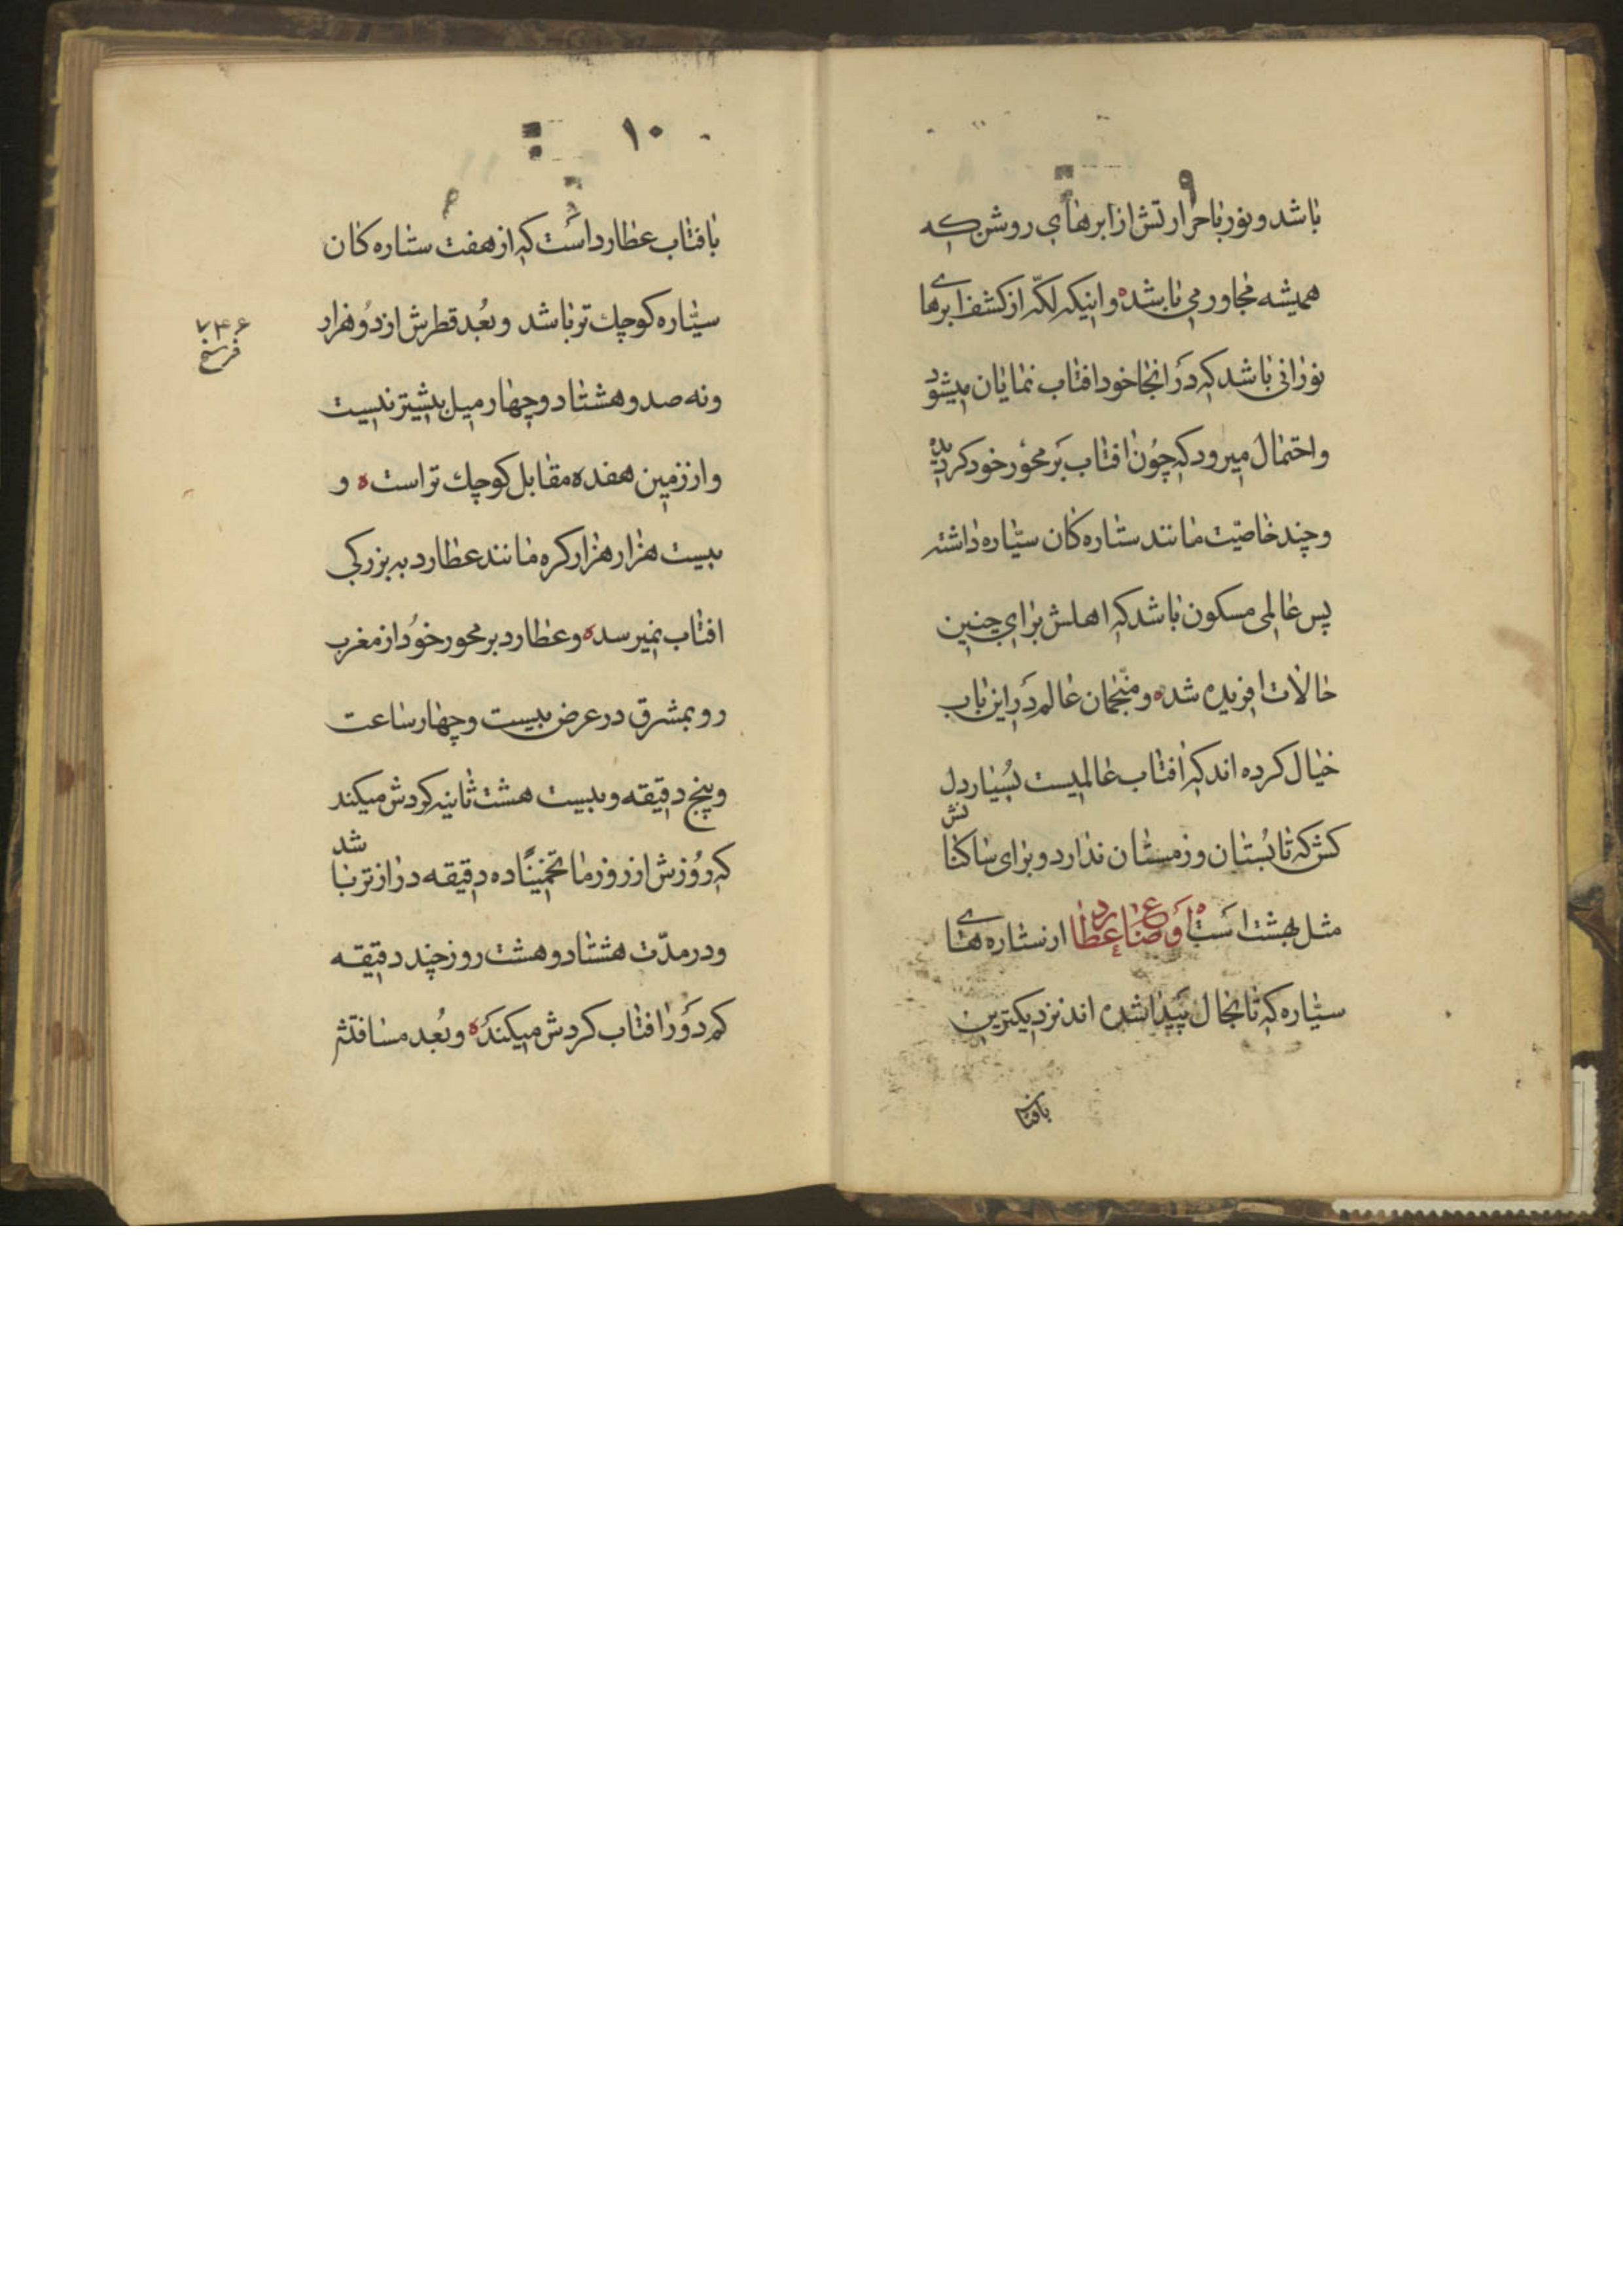 ۹
باشد و نور با حرارتش از ابرهای روشن که
همیشه مجاور می باشد ه و اینکه لکّه از کشف ابرهای
نورانی باشد که دَر انجا خود افتاب نمایان میشود
و احتمال میرود که چُون افتاب بَر محوَر خود کردیده
و چند خاصیّت مانند ستاره کان سیّاره داشته
پس عالمی مسکون باشد که اهلش برای چنین
حالات افریده شده ه و منّجمان عالم دَر این باب
خیال کرده اند که اَفتاب عالمیست بسُیار دل
کش که تابُستان و زمستان ندارد و برای ساکنانش
مثل بهشت اَست ه اَوضاع عطارد از ستاره های
سیّاره که تا بحال پَیدا شده اند نزدیکترین
بافتاب
۱۰
بافتاب عطارد اَست که از هفت ستاره کان
سیّاره کوچك تر باشد و بُعد قطرش از دُو هزار
۷۴۶
فرسخ
و نه صد و هشتاد و چهار میل بیشتر نیست
و از زمین هفده مقابل کوچك تر است ه و
بیست هزار هزار کره مانند عطارد به بزرکی
افتاب نمیرسد ه و عطارد بر محور خوُد از مغرب
رو بمشرق در عرض بیست و چهار ساعت
و پنج دقیقه و بیست هشت ثانیه کردش میکند
که رُوزش از روز ما تخمینًا ده دقیقه دراز تر باشد
و در مدّت هشتاد و هشت روز چند دقیقه
کم دَوَر افتاب کردش میکندَ ه و بُعد مسافتش